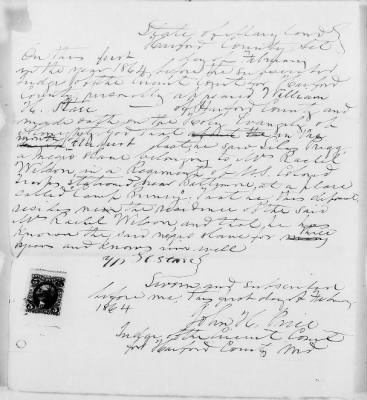 State of Maryland
Harford County, Sct
On this first day of February
in the year 1864, before the subscriber
Judge of the Circuit Court of Harford
County personally appeared William
H. Stace of Harford County and
made oath on the Holy Evangely of
Almighty God that in the
month of August past he saw
a negro slave belonging to Mrs Rachel
Wilson in a Regiment of U.S. Colored
troops stationed near Baltimore, at a place
called Camp Birney. That he, this deponent
resides near the residence of the said
Mrs Rachel Wilson and that he has
known the said negro slave for
years and knows him well
Sworn and subscribed
before me this first day of February
1864
John H. Price
Judge of the Circuit Court
for Harford County Md